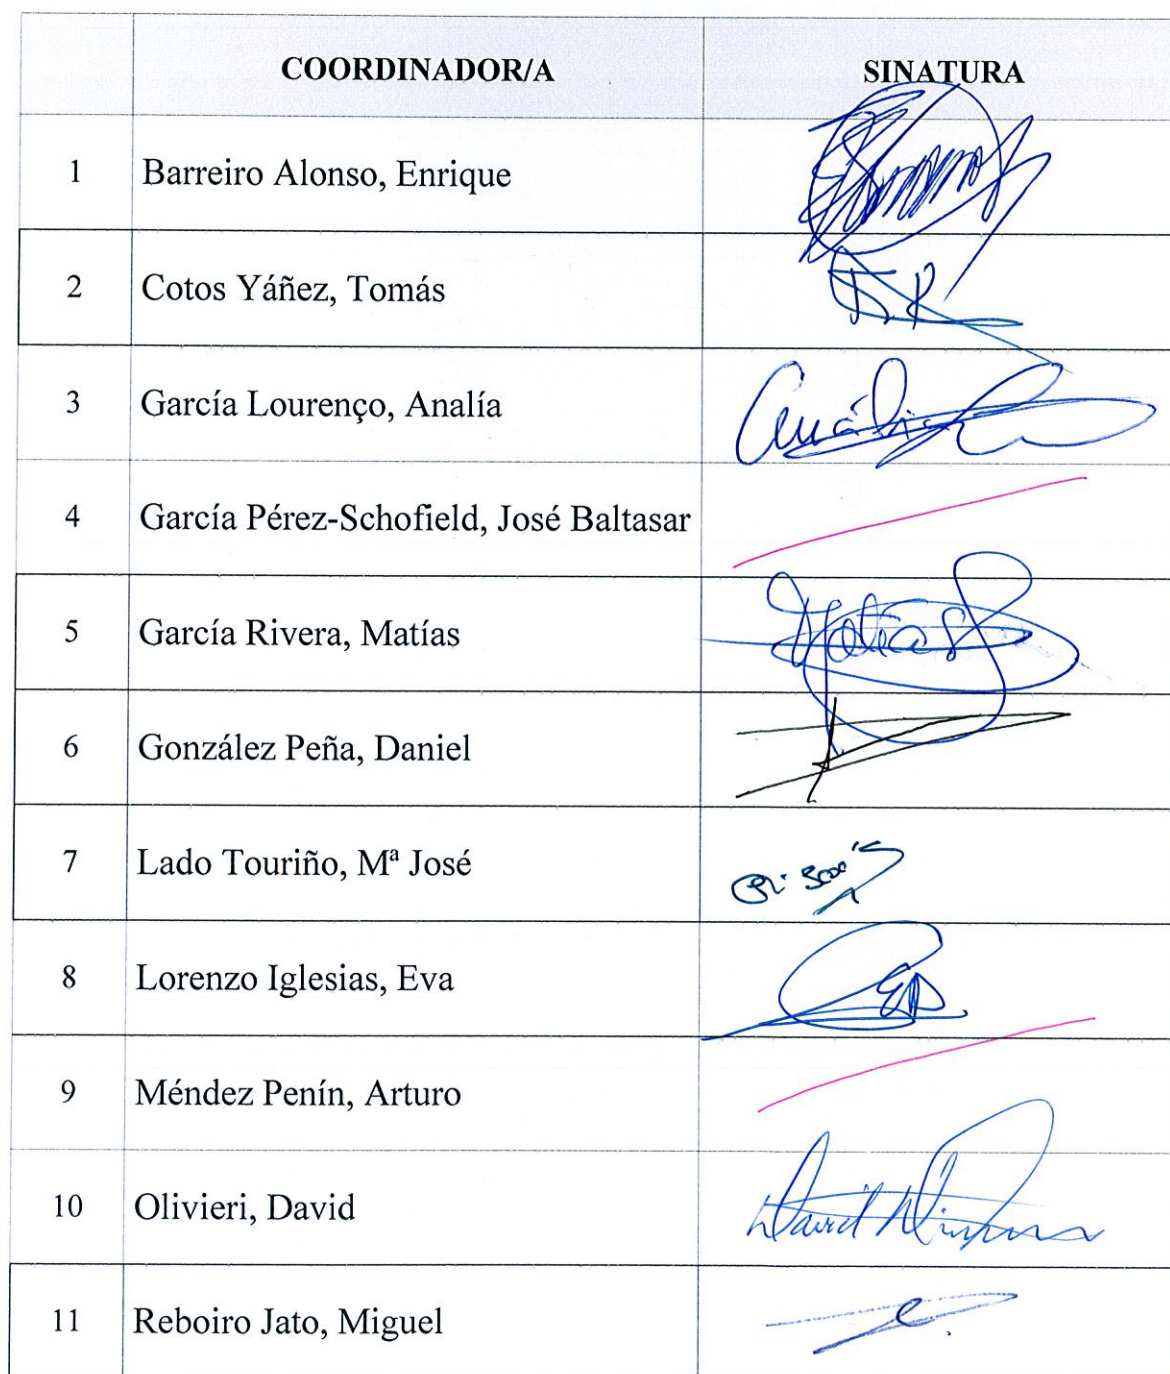 COORDINADOR/A SINATURA
1 Barreiro Alonso, Enrique
2 Cotos Yáñez, Tomás
3 García Lourenço, Analía
4 García Pérez-Schofield, José Baltasar
5 García Rivera, Matías
Matías
6 González Peña, Daniel
7 Lado Touriño, Mª José
8 Lorenzo Iglesias, Eva
9 Méndez Penín, Arturo
10 Olivieri, David David
11 Reboiro Jato, Miguel